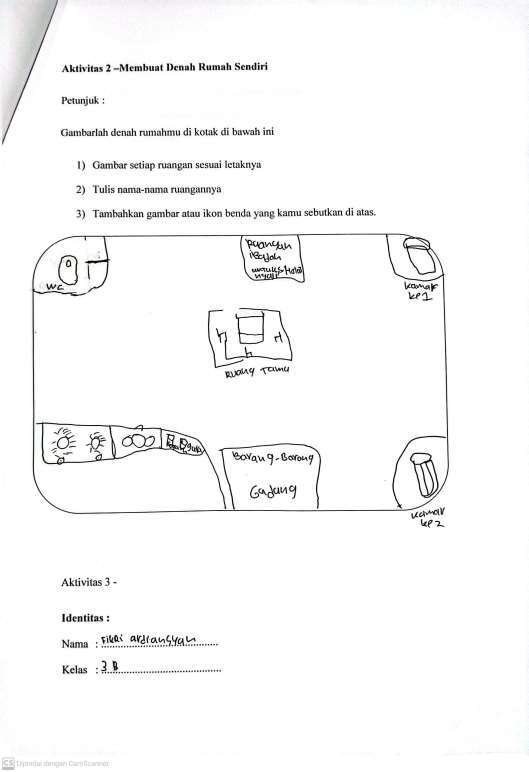 Aktivitas 2 –Membuat Denah Rumah Sendiri
Petunjuk :
Gambarlah denah rumahmu di kotak di bawah ini
1) Gambar setiap ruangan sesuai letaknya
2) Tulis nama-nama ruangannya
3) Tambahkan gambar atau ikon benda yang kamu sebutkan di atas.
WC
Ruangan
ibadah
kamar
ke1
Ruang Tamu
Borang-Borang
Gadang
kamar
ke2
Aktivitas 3 -
Identitas :
Nama : Fikri ardiansyah
Kelas : 3 B
CS Dipindai dengan CamScanner